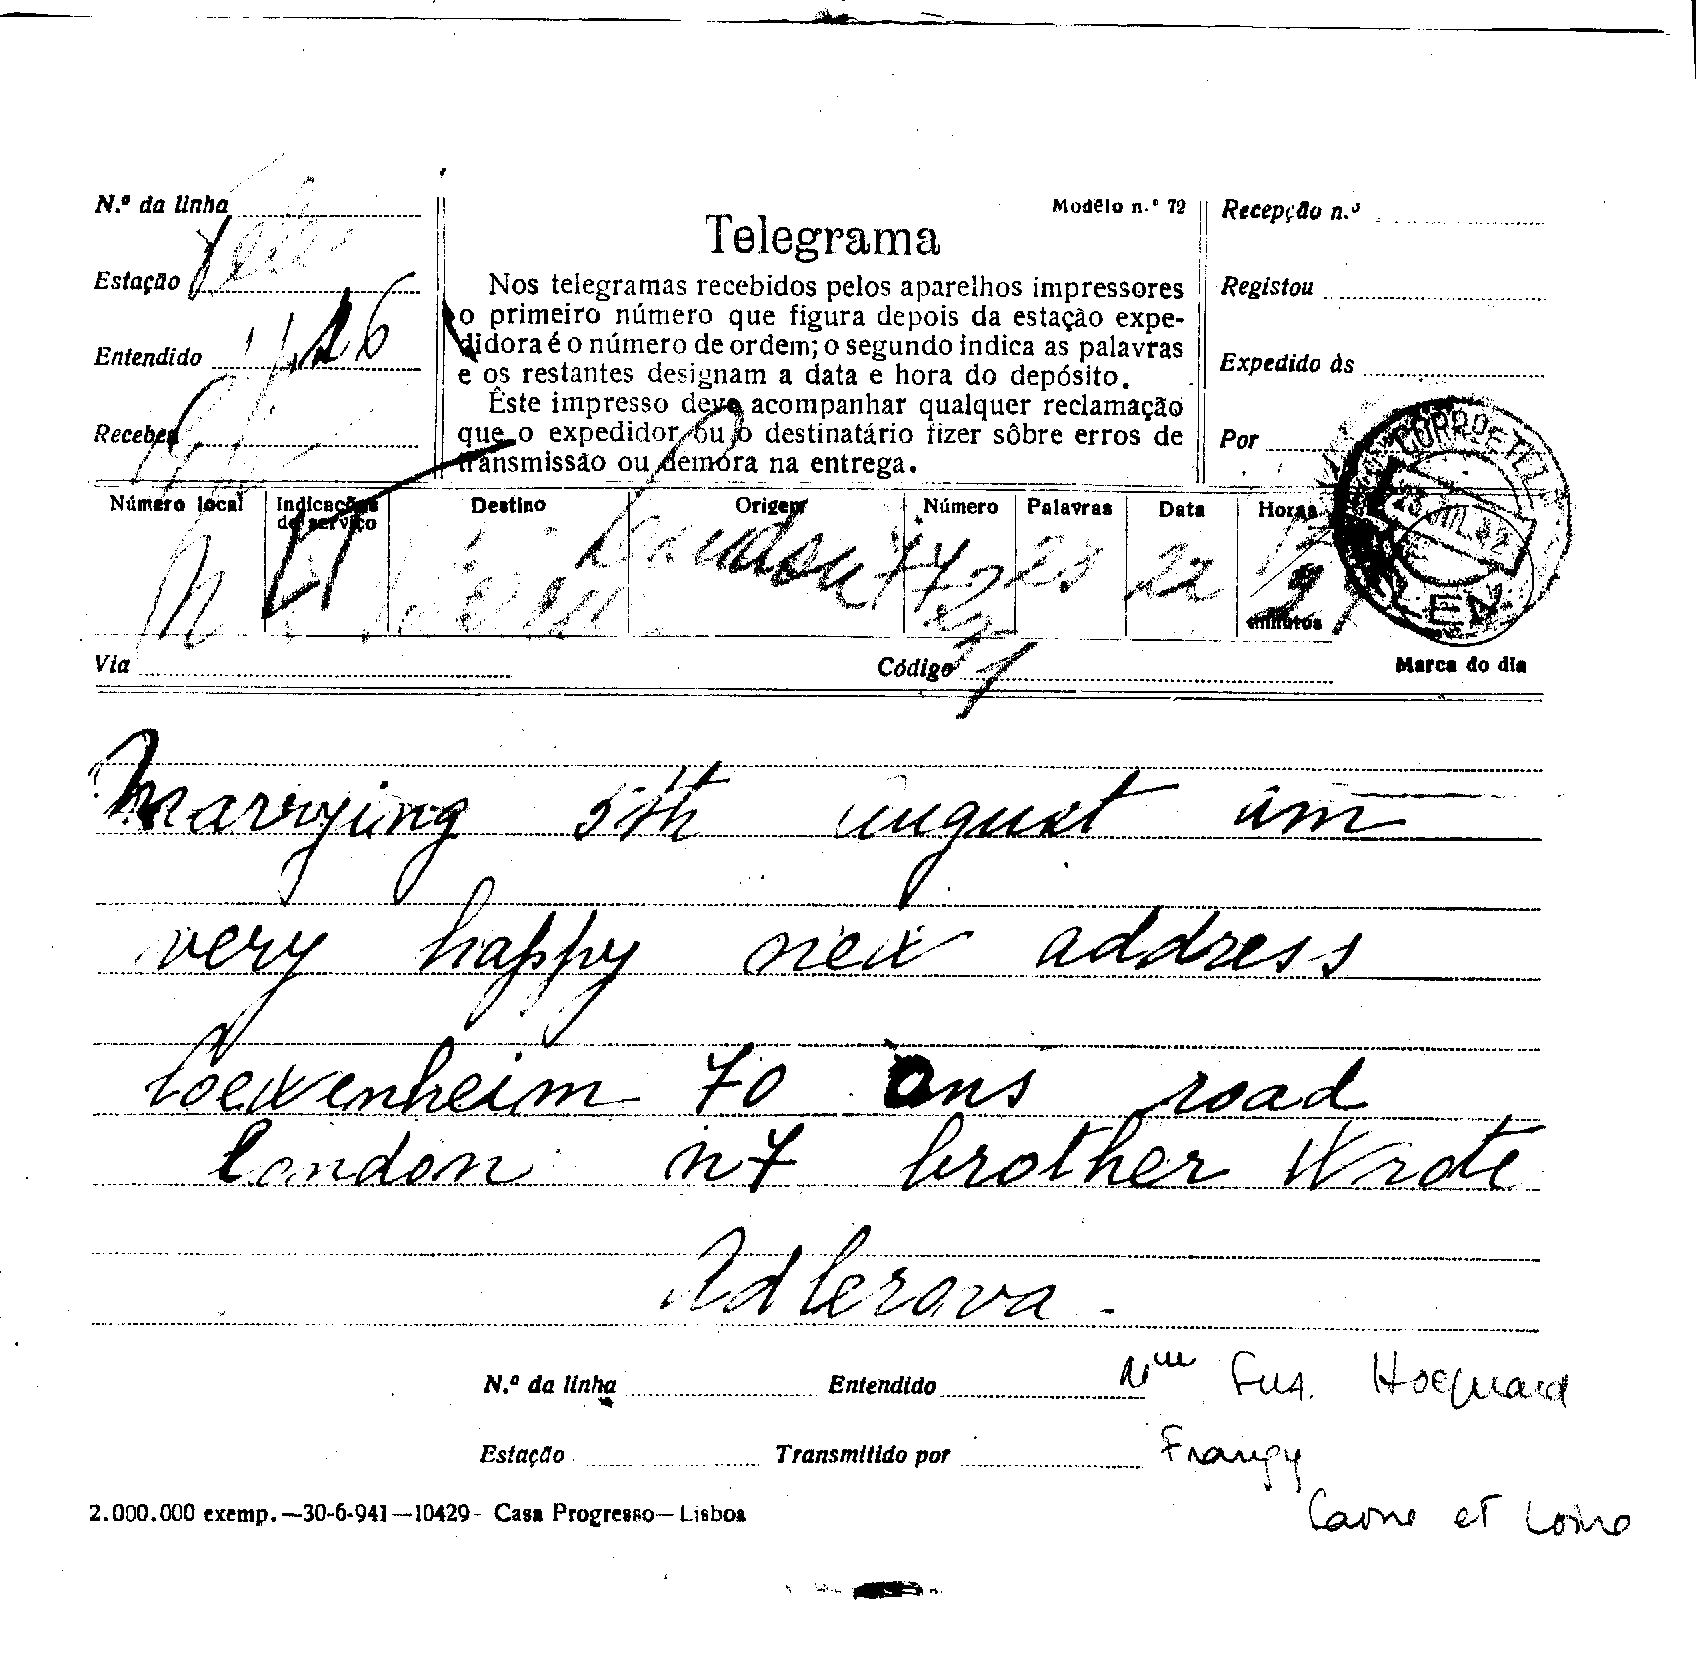 N.º da linha
Modêlo n.º 72
Recepção n.º
Telegrama
Estação
Nos telegramas recebidos pelos aparelhos impressores
Registou
o primeiro número que figura depois da estação expe-
Entendido 1/26
didora é o número de ordem; o segundo indica as palavras
Expedido às
e os restantes designam a data e hora do depósito.
Êste impresso deve acompanhar qualquer reclamação
Recebeu
que o expedidor ou o destinatário fizer sôbre erros de
Por
transmissão ou demora na entrega.
Número local Indicações de serviço Destino Origem Número Palavras Data Horas
London 23 22
minutos
Via
Código
Marca do dia
Marrying 5th august am
very happy new address
loewenheim 70 ans road
london n7 brother wrote
Adlerova -
N.º da linha Entendido
Hocquard
Estação Transmitido por
Frangy
et Loire
2.000.000 exemp.—30-6-941—10429- Casa Progresso—Lisboa